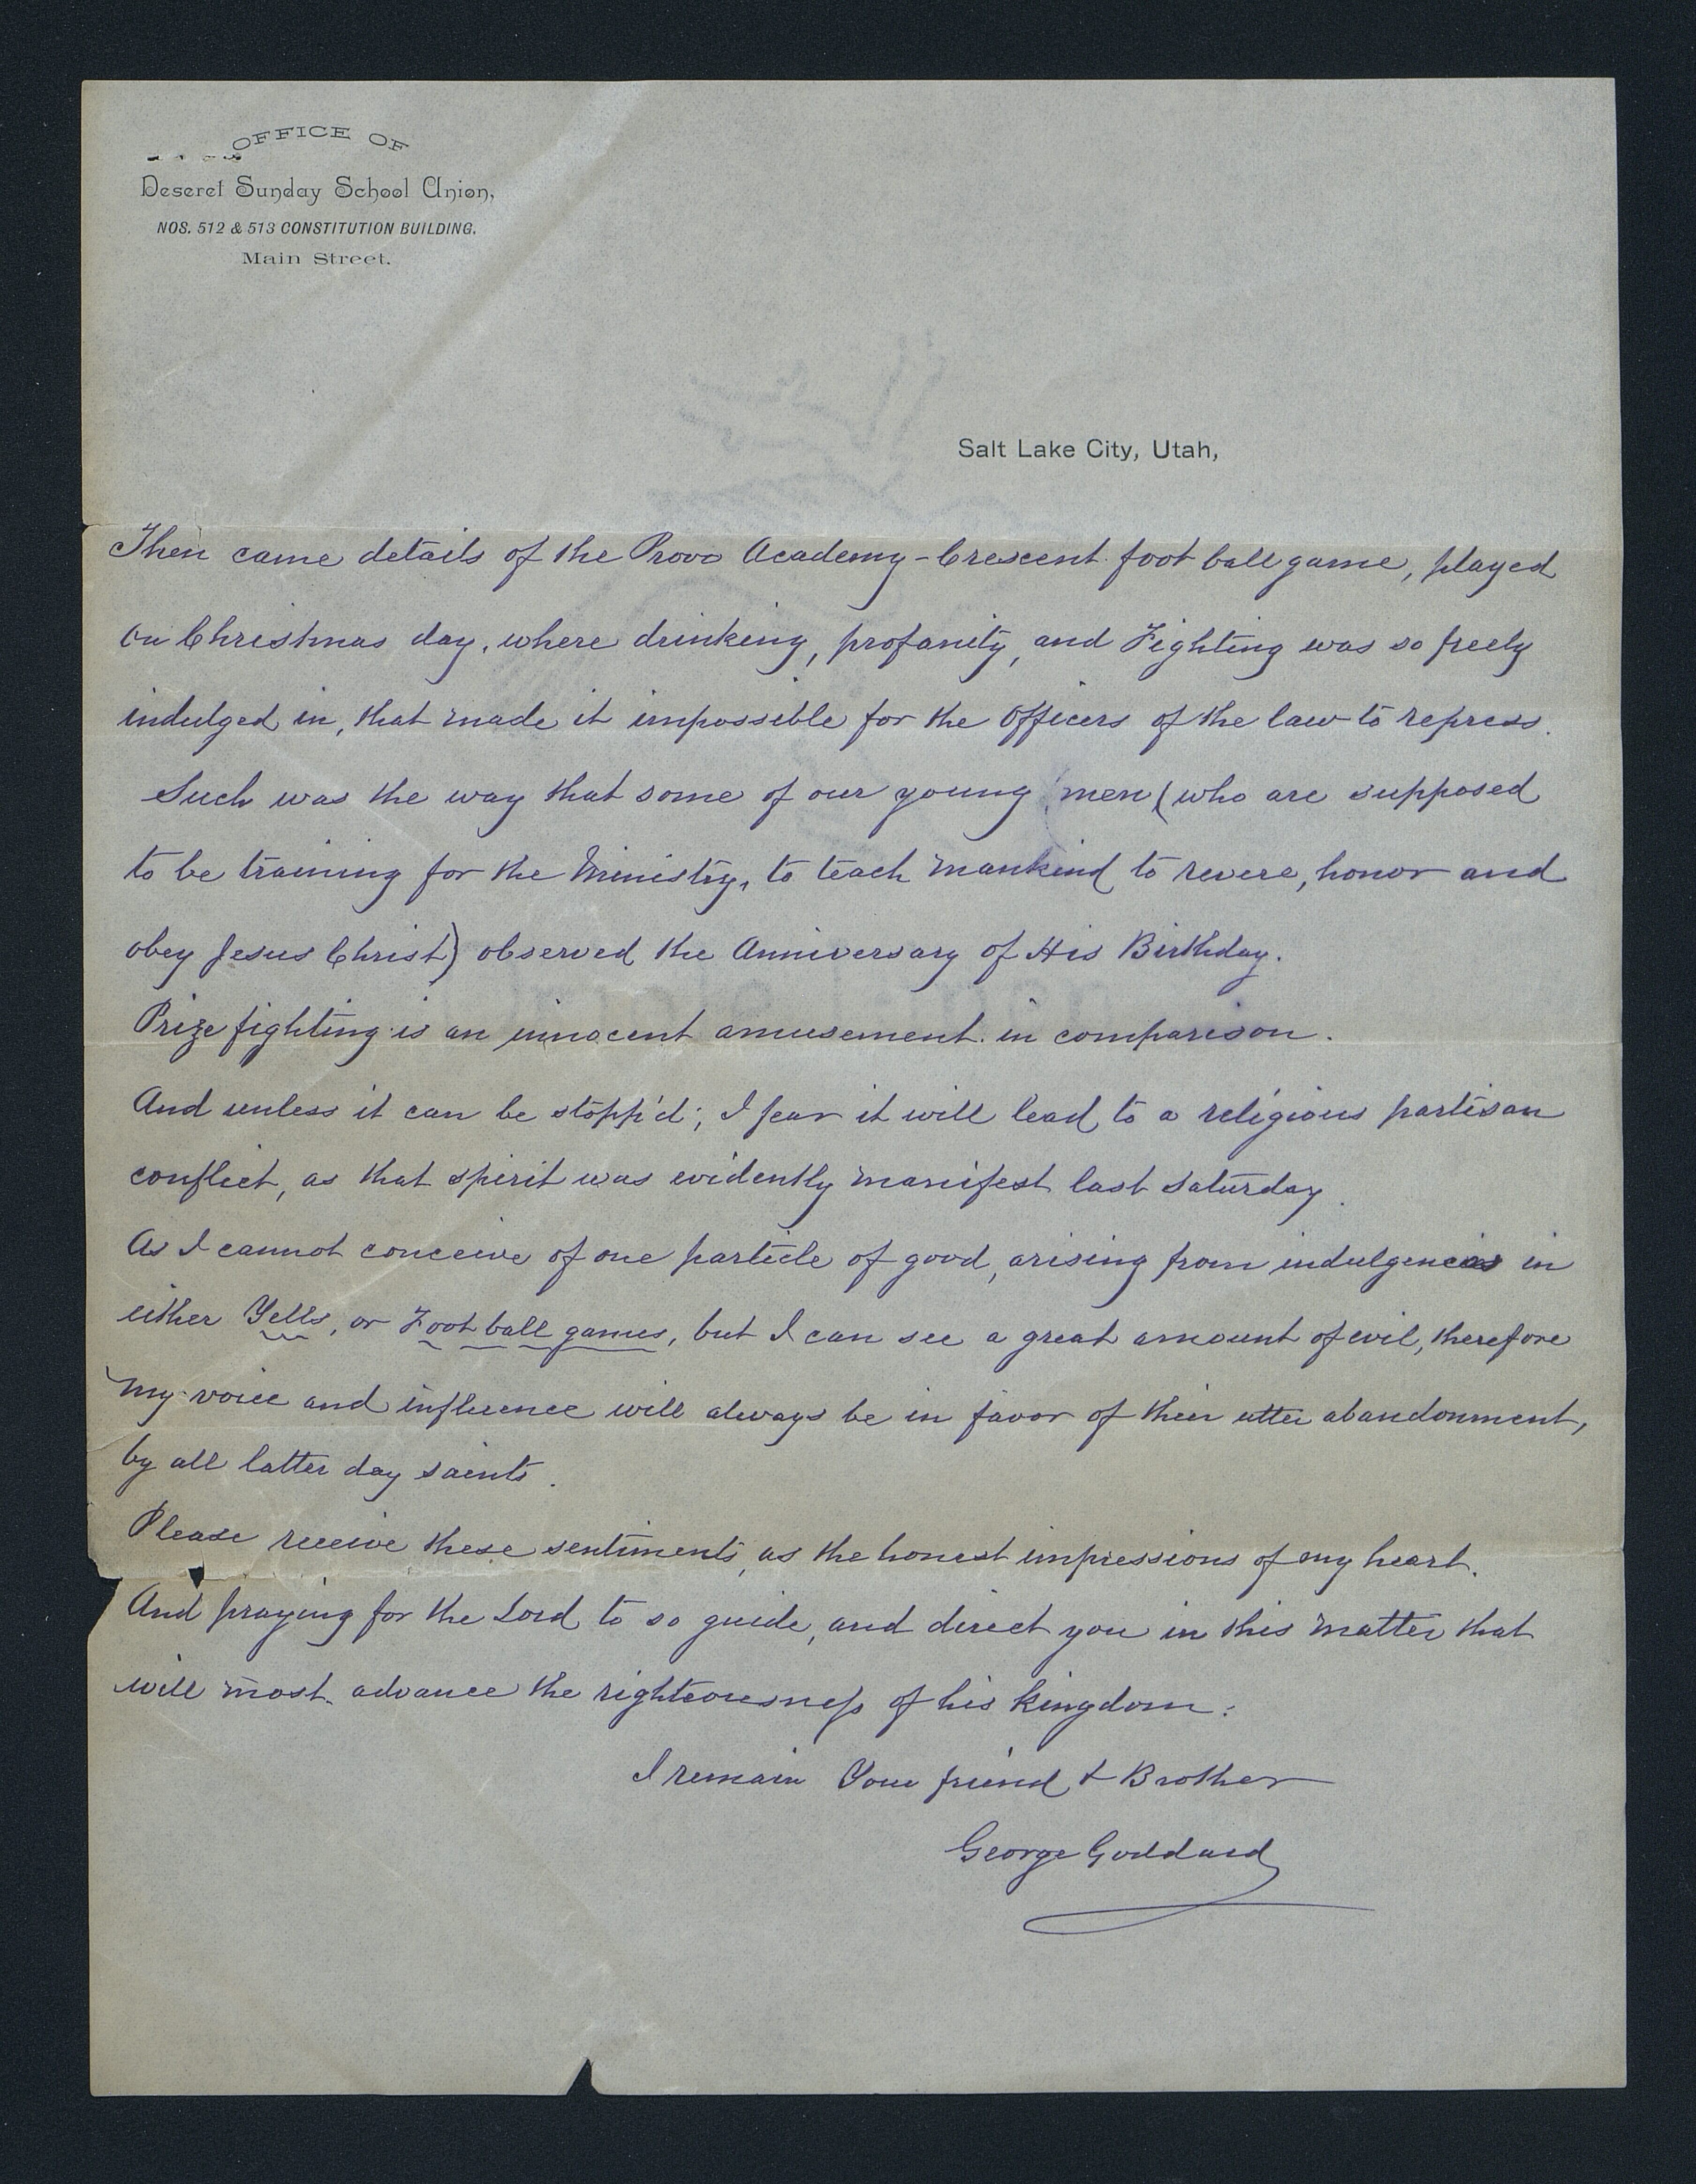 OFFICE OF
Deseret Sunday School Union,
NOS. 512 & 513 CONSTITUTION BUILDING.
Main Street.
Salt Lake City, Utah,
Then came details of the Provo Academy-Crescent foot ball game, played
on Christmas day, where drinking, profanity, and Fighting was so freely
indulged in, that made it impossible for the Officers of the law to repress.
Such was the way that some of our young men (who are supposed
to be training for the Ministry, to teach mankind to revere, honor and
obey Jesus Christ) observed the Anniversary of His Birthday.
Prize fighting is an innocent amusement in comparison.
And unless it can be stopp'd; I fear it will lead to a religious partisan
conflict, as that spirit was evidently manifest last Saturday.
As I cannot conceive of one particle of good, arising from indulgencies in
either Yells, or Foot ball games, but I can see a great amount of evil, therefore
my voice and influence will always be in favor of their utter abandonment,
by all latter day saints.
Please receive these sentiments, as the honest impressions of my heart.
And praying for the Lord to so guide, and direct you in this matter that
will most advance the righteousness of his kingdom:
I remain Your friend & Brother
George Goddard